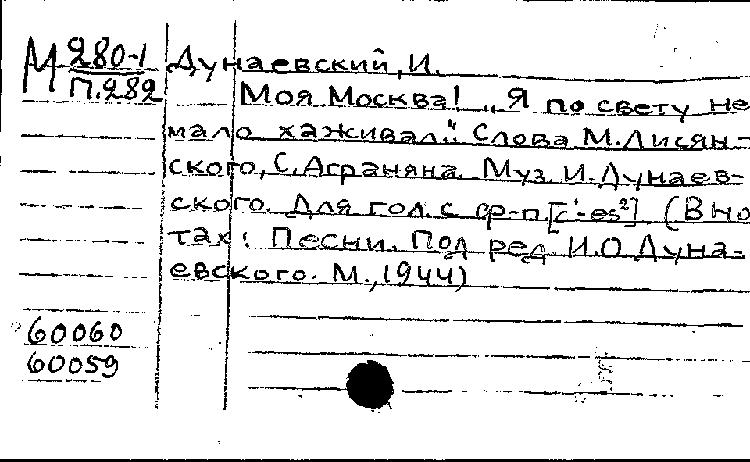 М 280-1
П.282
Дунаевский, И.
Моя Москва! „Я по свету не
мало хаживал". Слова М.Лисян-
ского, С.Аграняна. Муз. И.Дунаев-
ского. Для гол. с ф-п. [c¹-es²] (В но
тах: Песни. Под ред. И.О.Дуна-
евского. М., 1944)
60060
60059